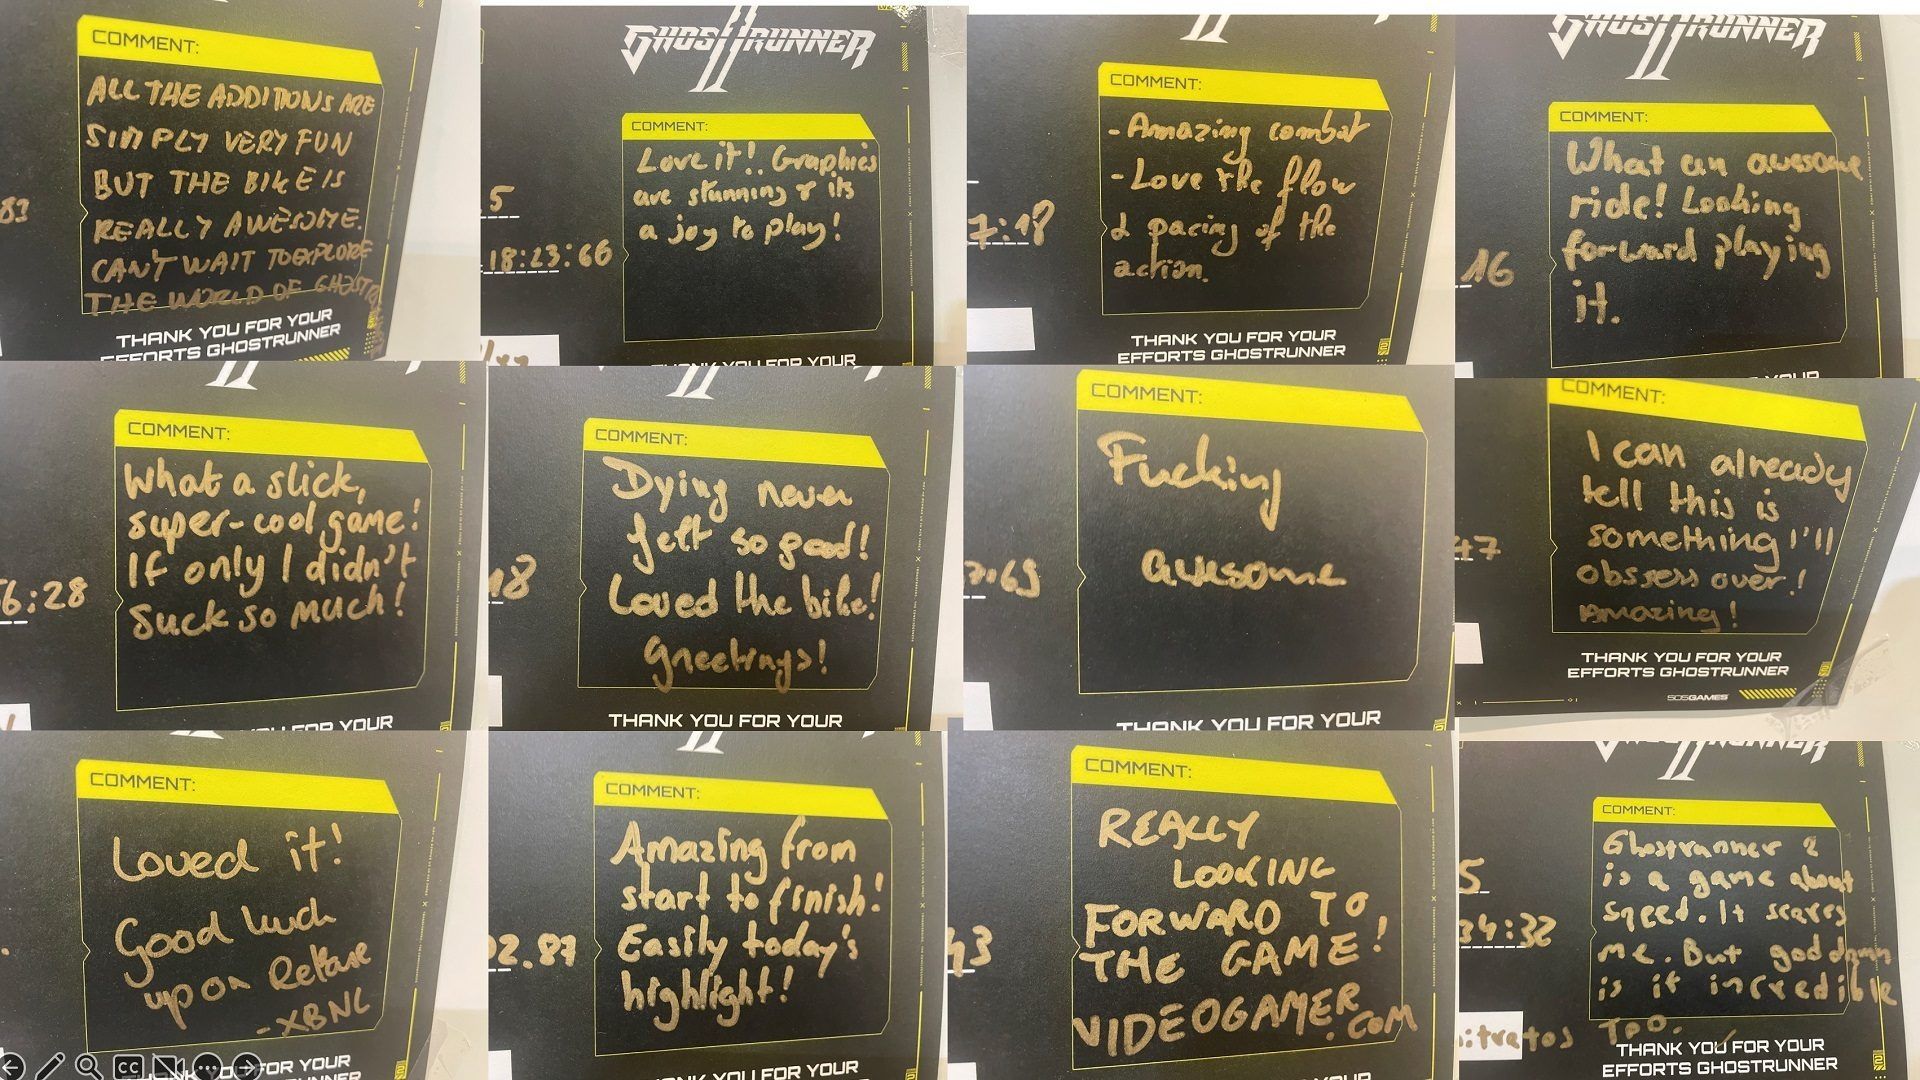 COMMENT:
ALL THE ADDITIONS ARE
SIMPLY VERY FUN
BUT THE BIKE IS
REALLY AWESOME.
CAN'T WAIT TO EXPLORE
THE WORLD OF
THANK YOU FOR YOUR
EFFORTS GHOSTRUNNER
83
GHOSTRUNNER
II
COMMENT:
Love it!. Graphics
are stunning & its
a joy to play!
5
18:23:66
THANK YOU FOR YOUR
II
COMMENT:
- Amazing combat
- Love the flow
& pacing of the
action.
7:18
THANK YOU FOR YOUR
EFFORTS GHOSTRUNNER
GHOSTRUNNER
II
COMMENT:
What an awesome
ride! Looking
forward playing
it.
16
YOUR
II
COMMENT:
What a slick,
super-cool game!
If only I didn't
suck so much!
6:28
YOU FOR YOUR
II
COMMENT:
Dying never
felt so good!
Loved the bike!
Greetings!
18
THANK YOU FOR YOUR
COMMENT:
Fucking
awesome
:69
THANK YOU FOR YOUR
COMMENT:
I can already
tell this is
something I'll
obssess over!
Amazing!
47
THANK YOU FOR YOUR
EFFORTS GHOSTRUNNER
505GAMES
COMMENT:
Loved it!
Good luck
upon Release
- XBNL
FOR YOUR
GHOSTRUNNER
CC
II
COMMENT:
Amazing from
start to finish!
Easily today's
highlight!
02.87
THANK YOU FOR YOUR
COMMENT:
REALLY
LOOKING
FORWARD TO
THE GAME!
VIDEOGAMER
.COM
43
THANK YOU FOR YOUR
GHOSTRUNNER
II
COMMENT:
Ghostrunner 2
is a game about
speed. It scares
me. But goddamn
is it incredible
too.
5
34:32
THANK YOU FOR YOUR
EFFORTS GHOSTRUNNER